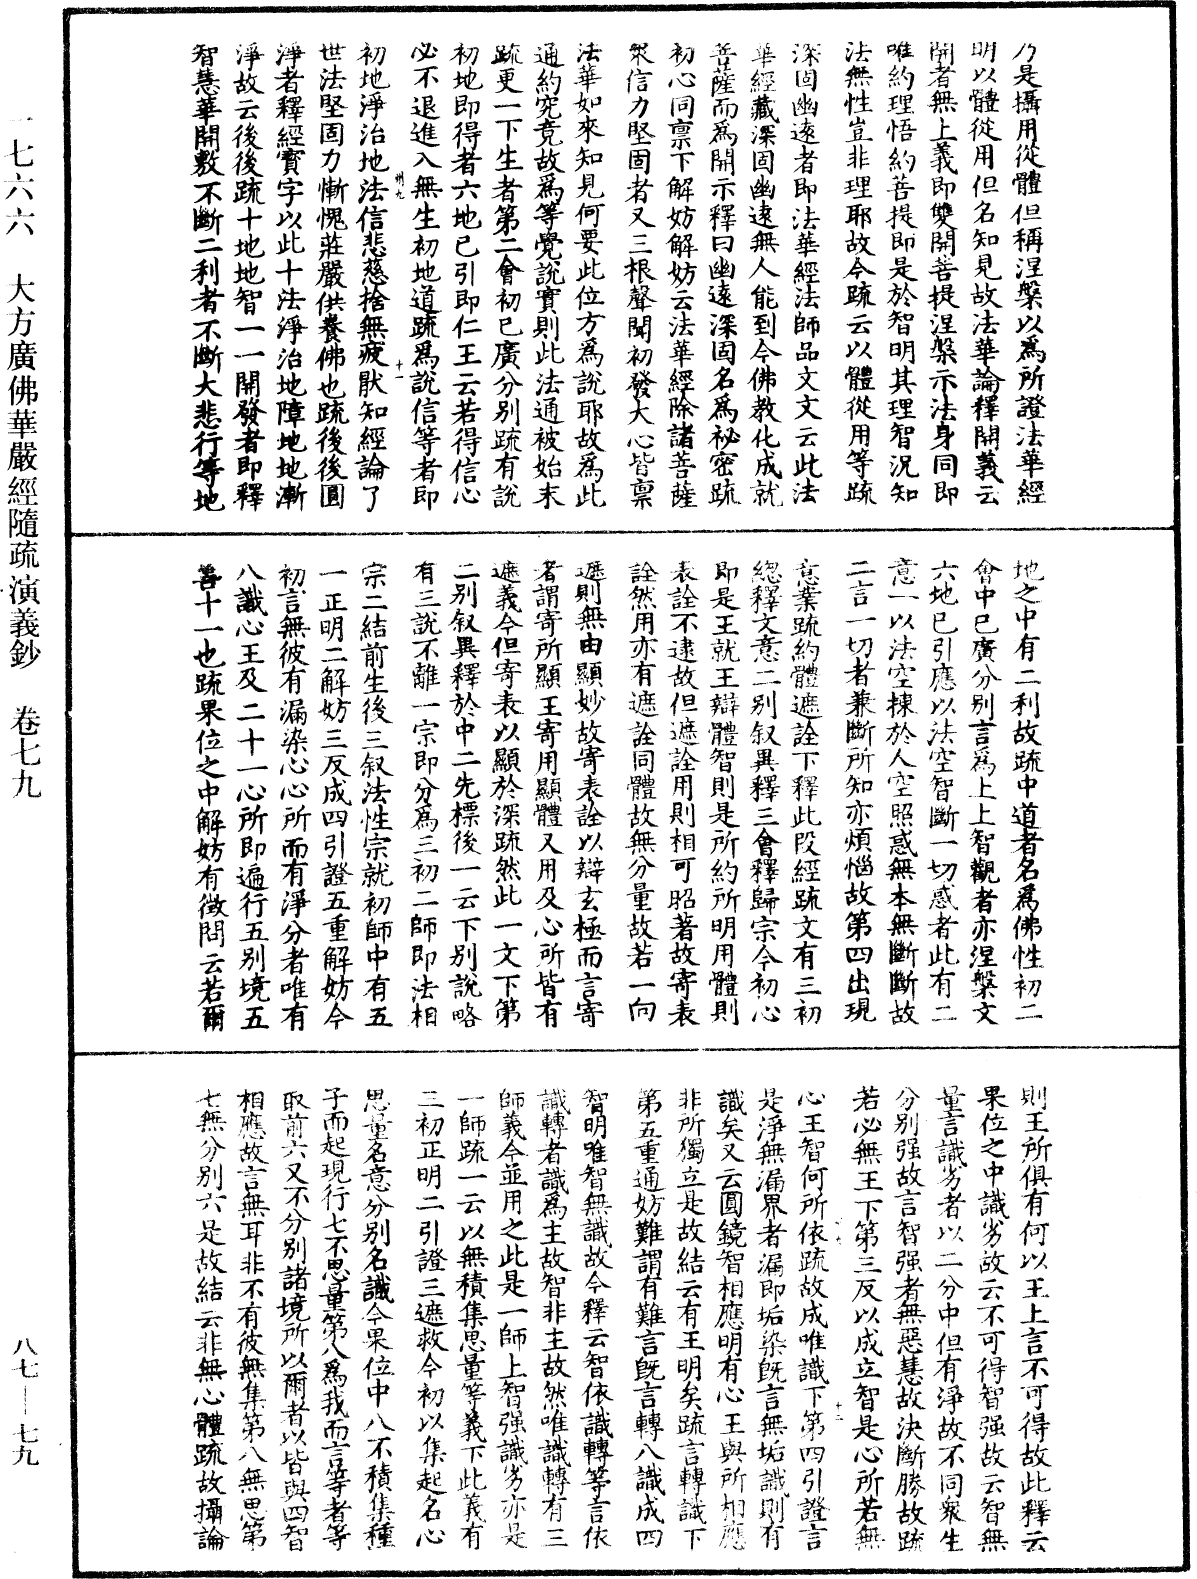 乃是攝用從體但稱涅槃以為所證法華經
明以體從用但名知見故法華論釋開義云
開者無上義即雙開菩提涅槃示法身同即
唯約理悟約菩提即是於智明其理智況知
法無性豈非理耶故今疏云以體從用等疏
深固幽遠者即法華經法師品文文云此法
華經藏深固幽遠無人能到今佛教化成就
菩薩而為開示釋曰幽遠深固名為祕密疏
初心同禀下解妨解妨云法華經除諸菩薩
眾信力堅固者又三根聲聞初發大心皆禀
法華如來知見何要此位方為說耶故為此
通約究竟故為等覺說實則此法通被始末
疏更一下生者第二會初已廣分別疏有說
初地即得者六地已引即仁王云若得信心
必不退進入無生初地道疏為說信等者即
初地淨治地法信悲慈捨無疲猒知經論了
世法堅固力慚愧莊嚴供養佛也疏後後圓
淨者釋經寶字以此十法淨治地障地地漸
淨故云後後疏十地地智一一開發者即釋
智慧華開敷不斷二利者不斷大悲行等地
地之中有二利故疏中道者名為佛性初二
會中已廣分別言為上上智觀者亦涅槃文
六地已引應以法空智斷一切惑者此有二
意一以法空揀於人空照惑無本無斷斷故
二言一切者兼斷所知亦煩惱故第四出現
意業疏約體遮詮下釋此段經疏文有三初
總釋文意二別叙異釋三會釋歸宗今初心
即是王就王辯體智則是所約所明用體則
表詮不逮故但遮詮用則相可昭著故寄表
詮然用亦有遮詮同體故無分量故若一向
遮則無由顯妙故寄表詮以辯玄極而言寄
者謂寄所顯王寄用顯體又用及心所皆有
遮義今但寄表以顯於深疏然此一文下第
二別叙異釋於中二先標後一云下別說略
有三說不離一宗即分為三初二師即法相
宗二結前生後三叙法性宗就初師中有五
一正明二解妨三反成四引證五重解妨今
初言無彼有漏染心心所而有淨分者唯有
八識心王及二十一心所即遍行五別境五
善十一也疏果位之中解妨有徵問云若爾
則王所俱有何以王上言不可得故此釋云
果位之中識劣故云不可得智強故云智無
量言識劣者以二分中但有淨故不同眾生
分別强故言智强者無惡慧故決斷勝故疏
若必無王下第三反以成立智是心所若無
心王智何所依疏故成唯識下第四引證言
是淨無漏界者漏即垢染既言無垢識則有
識矣又云圓鏡智相應明有心王與所相應
非所獨立是故結云有王明矣疏言轉識下
第五重通妨難謂有難言既言轉八識成四
智明唯智無識故今釋云智依識轉等言依
識轉者識為主故智非主故然唯識轉有三
師義今並用之此是一師上智强識劣亦是
一師疏一云以無積集思量等義下此義有
三初正明二引證三遮救今初以集起名心
思量名意分別名識今果位中八不積集種
子而起現行七不思量第八為我而言等者等
取前六又不分別諸境所以爾者以皆與四智
相應故言無耳非不有彼無集第八無思第
七無分別六是故結云非無心體疏故攝論
一七六六　大方廣佛華嚴經隨疏演義鈔　卷七九
八七——七九